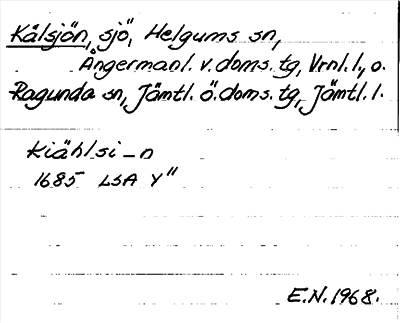 Kålsjön, sjö, Helgums sn,
Ångermanl. v. doms. tg, Vrnl. l., o.
Ragunda sn, Jämtl. ö. doms. tg, Jämtl. l.
Kiählsi_n
1685 LSA Y"
E.N. 1968.